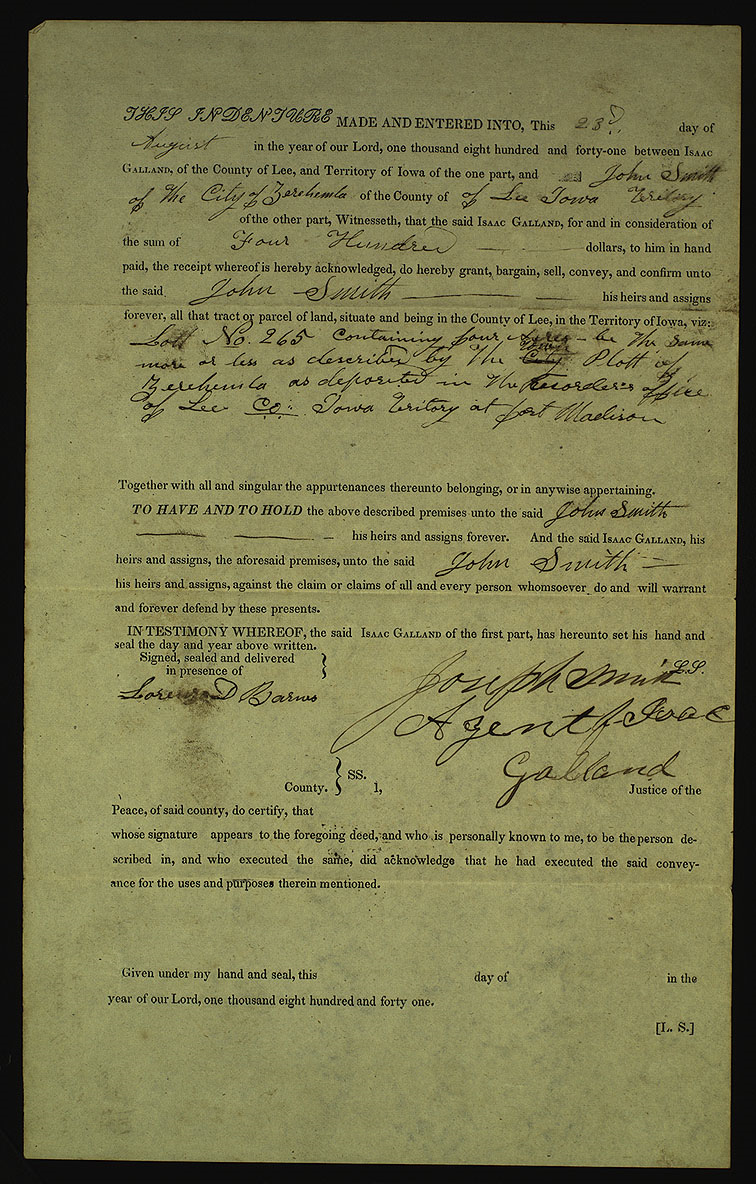 THIS INDENTURE MADE AND ENTERED INTO, This 23d day of
August in the year of our Lord, one thousand eight hundred and forty-one between ISAAC
GALLAND, of the County of Lee, and Territory of Iowa of the one part, and John Smith
of the City of Zerehemla of the County of of Lee Iowa Teritory
of the other part, Witnesseth, that the said ISAAC GALLAND, for and in consideration of
the sum of Four Hundred dollars, to him in hand
paid, the receipt whereof is hereby acknowledged, do hereby grant, bargain, sell, convey, and confirm unto
the said John Smith his heirs and assigns
forever, all that tract or parcel of land, situate and being in the County of Lee, in the Territory of Iowa, viz:
Lott No. 265 containing four Acres - be the same
more or less as described by the City Plott of
Zerehemla as deposited in the Recorders office
of Lee Co: Iowa Teritory at fort Madison
Together with all and singular the appurtenances thereunto belonging, or in anywise appertaining.
TO HAVE AND TO HOLD the above described premises unto the said John Smith
his heirs and assigns forever. And the said ISAAC GALLAND, his
heirs and assigns, the aforesaid premises, unto the said John Smith
his heirs and assigns, against the claim or claims of all and every person whomsoever do and will warrant
and forever defend by these presents.
IN TESTIMONY WHEREOF, the said ISAAC GALLAND of the first part, has hereunto set his hand and
seal the day and year above written.
Signed, sealed and delivered
in presence of
Lorenzo D Barns
Joseph Smith L.S.
Agent for Isaac
Galland
County. } SS. I, Justice of the
Peace, of said county, do certify, that
whose signature appears to the foregoing deed, and who is personally known to me, to be the person de-
scribed in, and who executed the same, did acknowledge that he had executed the said convey-
ance for the uses and purposes therein mentioned.
Given under my hand and seal, this day of in the
year of our Lord, one thousand eight hundred and forty one.
[L. S.]